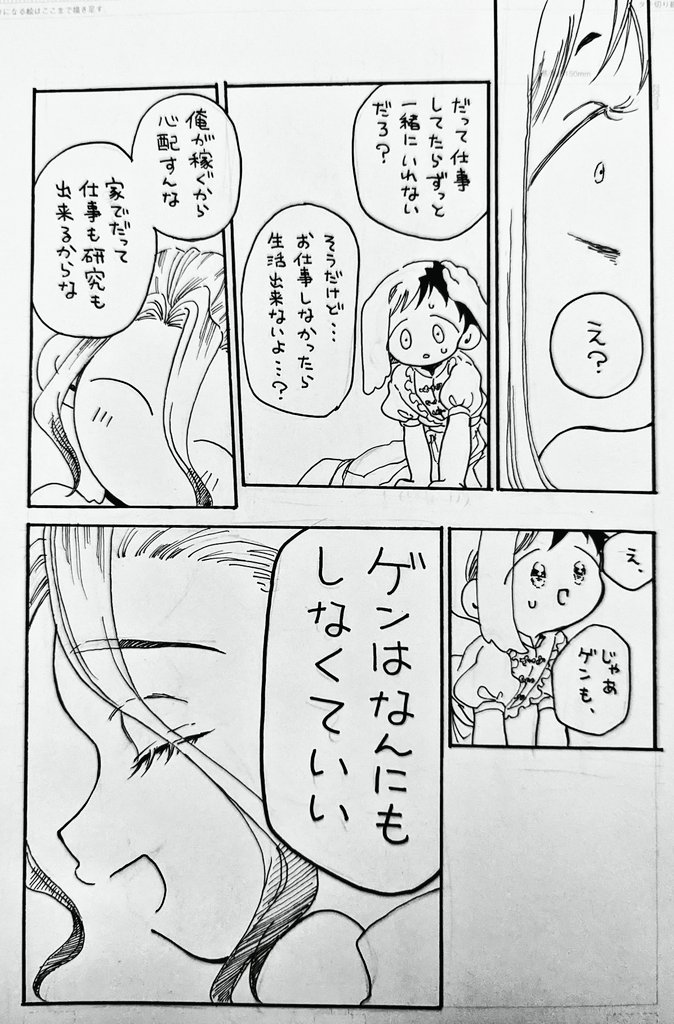 え?
だって仕事
してたらずっと
一緒にいれない
だろ?
そうだけど…
お仕事しなかったら
生活出来ないよ…?
俺が稼ぐから
心配すんな
家でだって
仕事も研究も
出来るからな
え、
じゃあ
ゲンも、
ゲンはなんにも
しなくていい